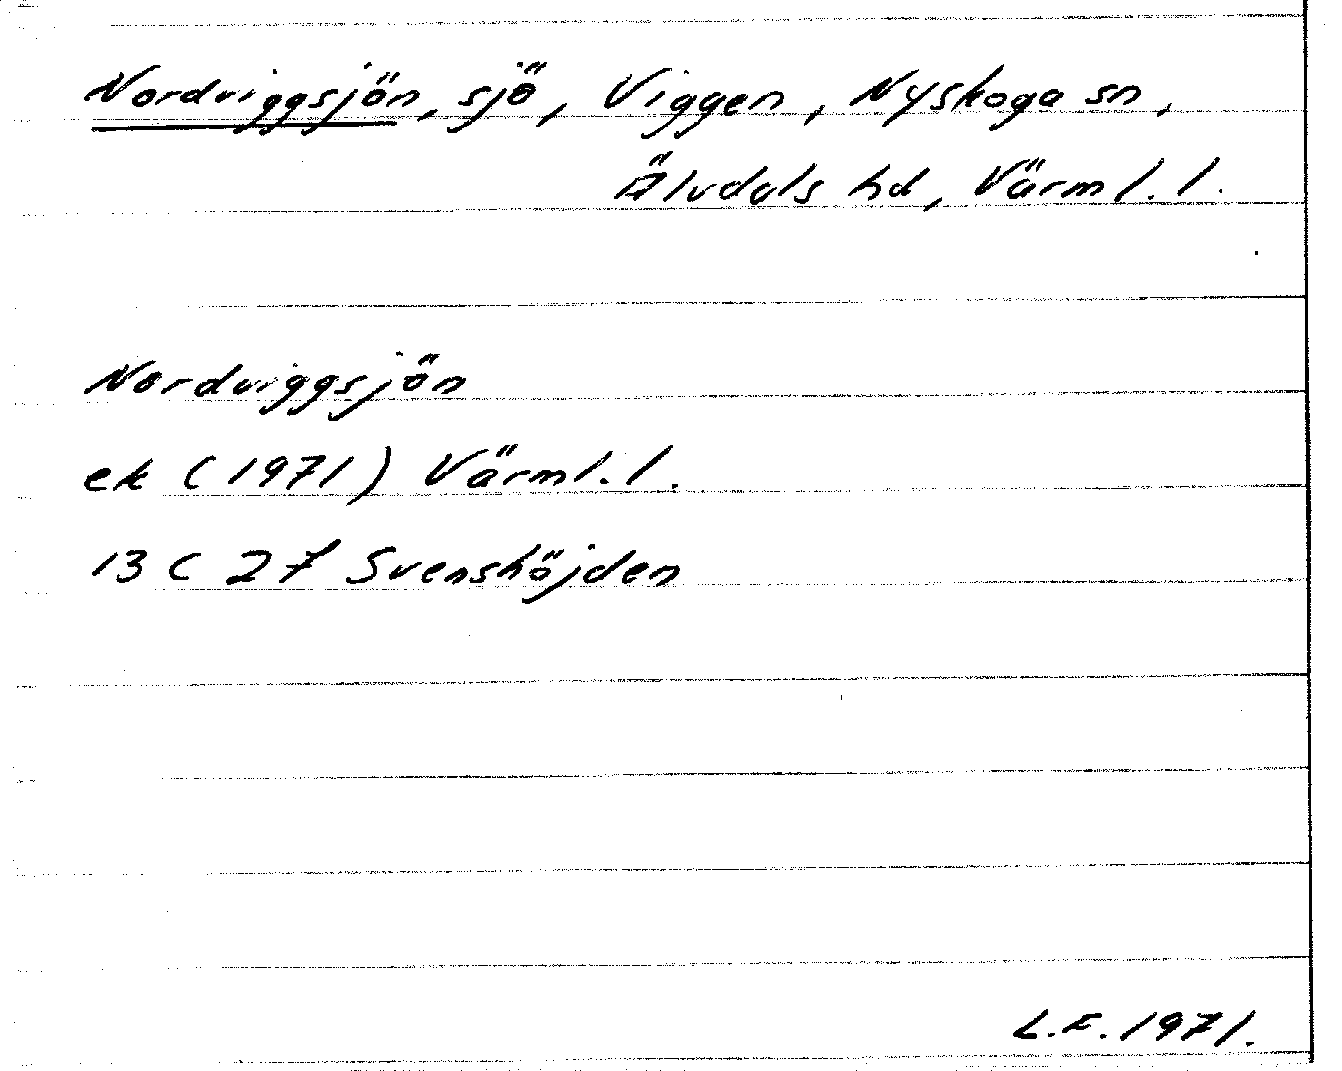 Nordviggsjön, sjö, Viggen, Nyskoga sn,
Älvdals hd, Värml. l.
Nordviggsjön
ek (1971) Värml. l.
13 C 27 Svenshöjden
L.F. 1971.